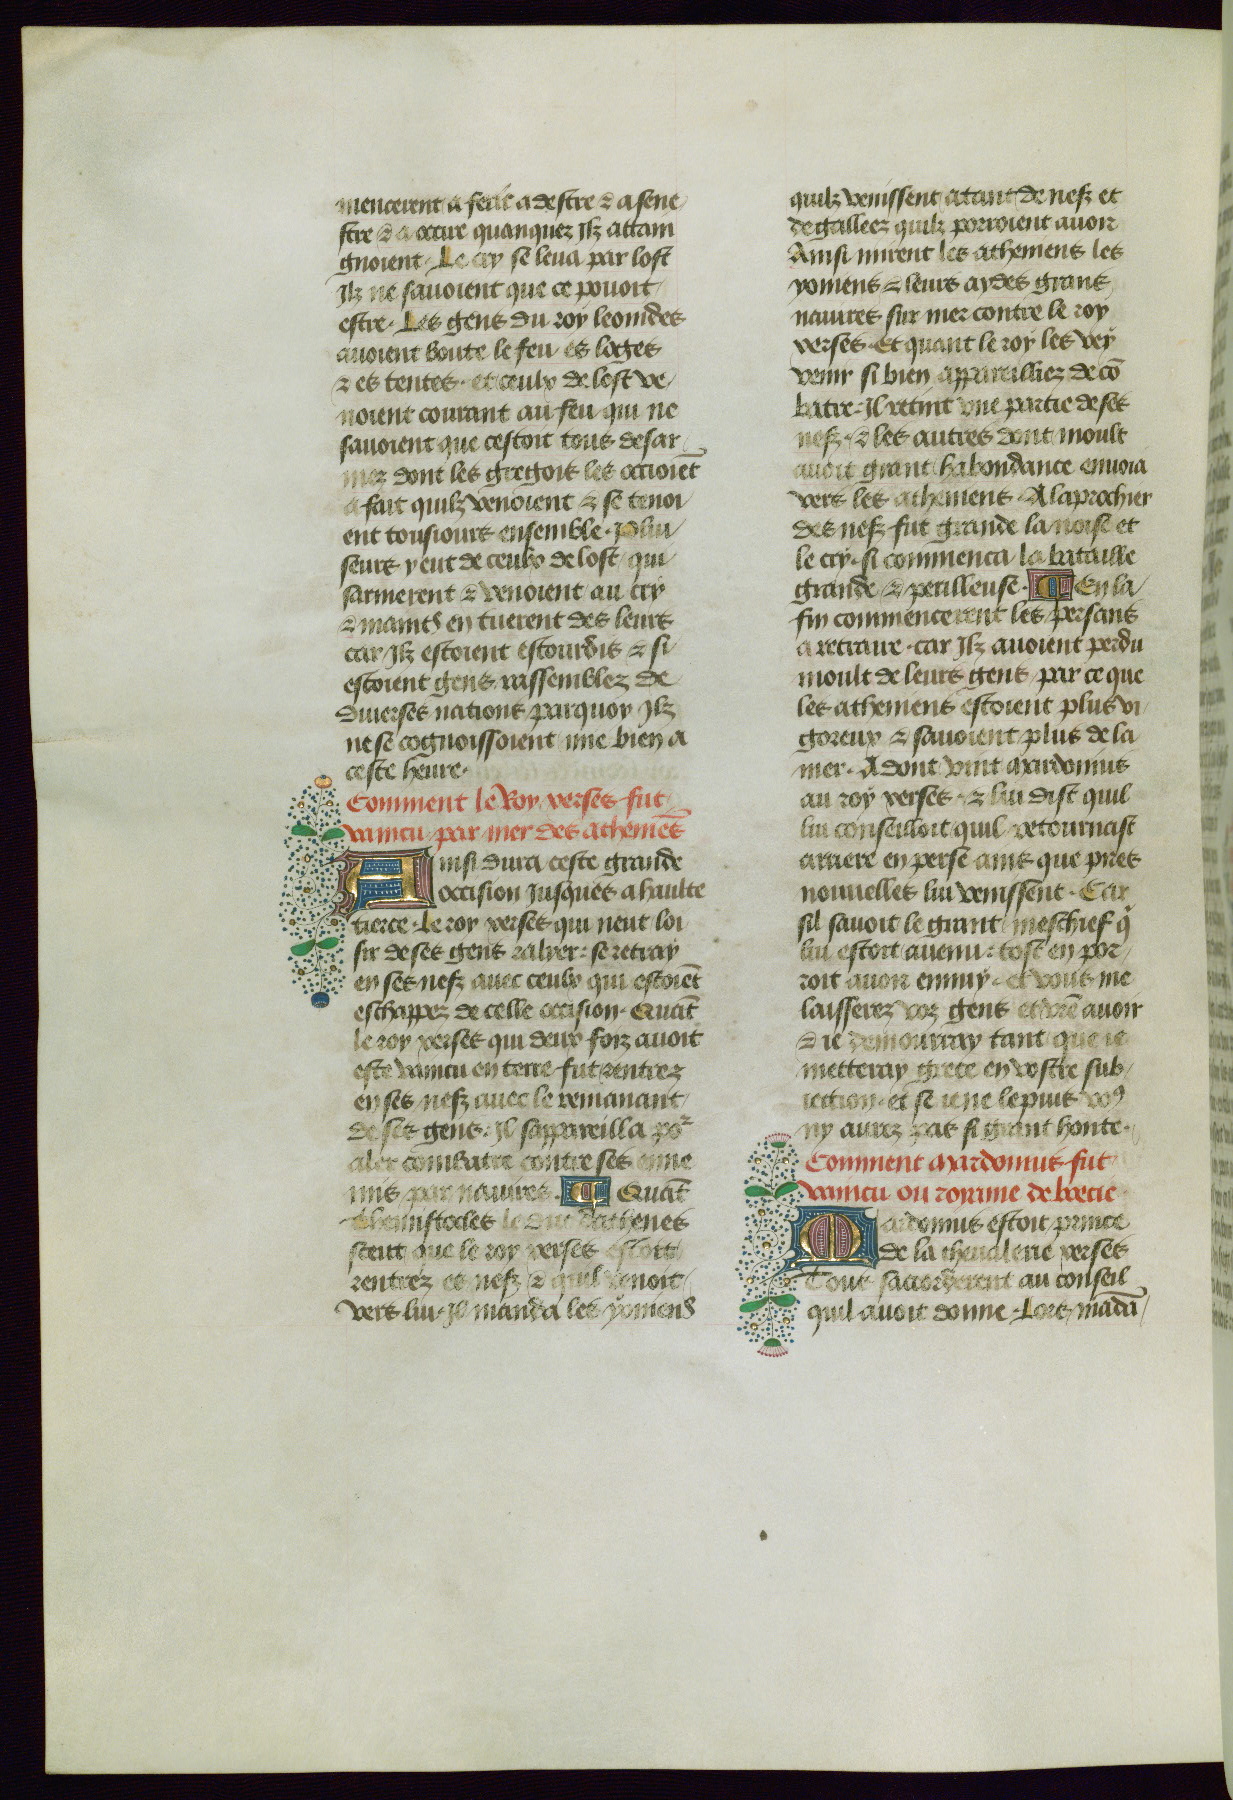 mencerent a ferir a destre & a sene
stre & a occire quanquez jlz attain
gnoient. Le cry se leua par lost
Jlz ne sauoient que ce pouoit
estre. Les gens du roy leonides
auoient boute le feu es loges
& es tentes. et ceulx de lost ve
noient courant au feu qui ne
sauoient que cestoit tous desar
mez dont les gregois les occioiēt
a fait quilz venoient & se tenoi
ent tousiours ensemble. Plui
seurs y eut de ceulx de lost qui
sarmerent & venoient au cry
& maints en tuerent des leurs
car jlz estoient estourdis & si
estoient gens rassemblez de
diuerses nations parquoy jlz
ne se cognoissoient mie bien a
ceste heure.
Comment le Roy xerses fut
vaincu par mer des atheniēs
Ainsi dura ceste grande
occision jusques a haulte
tierce. Le roy xerses qui neut loi
sir de ses gens ralyer: se retray
en ses nefz auec ceulx qui estoiēt
eschappez de celle occision. Quāt
le roy xerses qui deux foiz auoit
este vaincu en terre fut rentrez
en ses nefz auec le remanant
de ses gens: jl sappareilla por
aler combatre contre ses enne
mis par nauires. Quāt
Themistocles le duc dathenes
sceut que le roy xerses estoit
rentrez es nefz & quil venoit
vers lui. jl manda les yoniens
quilz venissent atant de nefz et
de galleez quilz porroient auoir
Ainsi mirent les atheniens les
yoniens & leurs aydes grans
nauires sur mer contre le roy
xerses. Et quant le roy les vey
venir si bien appareilliez de cō
batre: jl retint vne partie de ses
nefz. & les autres dont moult
auoit grant habondance enuoia
vers les atheniens. A laprochier
des nefz fut grande la noise et
le cry. si commenca la bataille
grande & perilleuse. En la
fin commencerent les persans
a retraire. car jlz auoient perdu
moult de leurs gens par ce que
les atheniens estoient plus vi
goreux & sauoient plus de la
mer. Adont vint mardonius
au roy xerses & lui dist quil
lui conseilloit quil retournast
arriere en perse ains que pires
nouuelles lui venissent. Car
sil sauoit le grant meschief q̄
lui estoit auenu: tost en por
roit auoir ennuy. et vous me
laisserez voz gens et vr̄e auoir
& ie demourray tant que ie
metteray grece en vostre sub
iection. et se ie ne le puis vo9
ny aurez pas si grant honte.
Comment mardonius fut
vaincu ou royaume de boecie
Mardonius estoit prince
de la cheualerie xerses
Tous saccorderent au conseil
quil auoit donne. Lors mādā